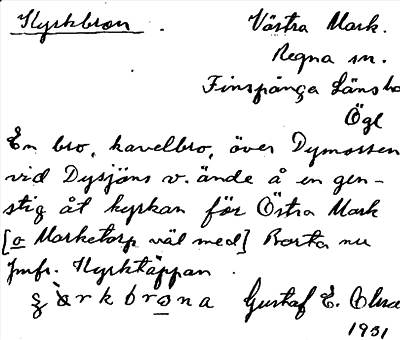 Kyrkbron. Västra Mark.
Regna sn.
Finspånga Länsh
Ögl
En bro, kavelbro, över Dymossen
vid Dysjöns v. ände å en gen-
stig åt kyrkan för Östra Mark
[o Marketorp väl med] Borta nu
Jmfr. Kyrktäppan.
Gustaf E. Olss
1931